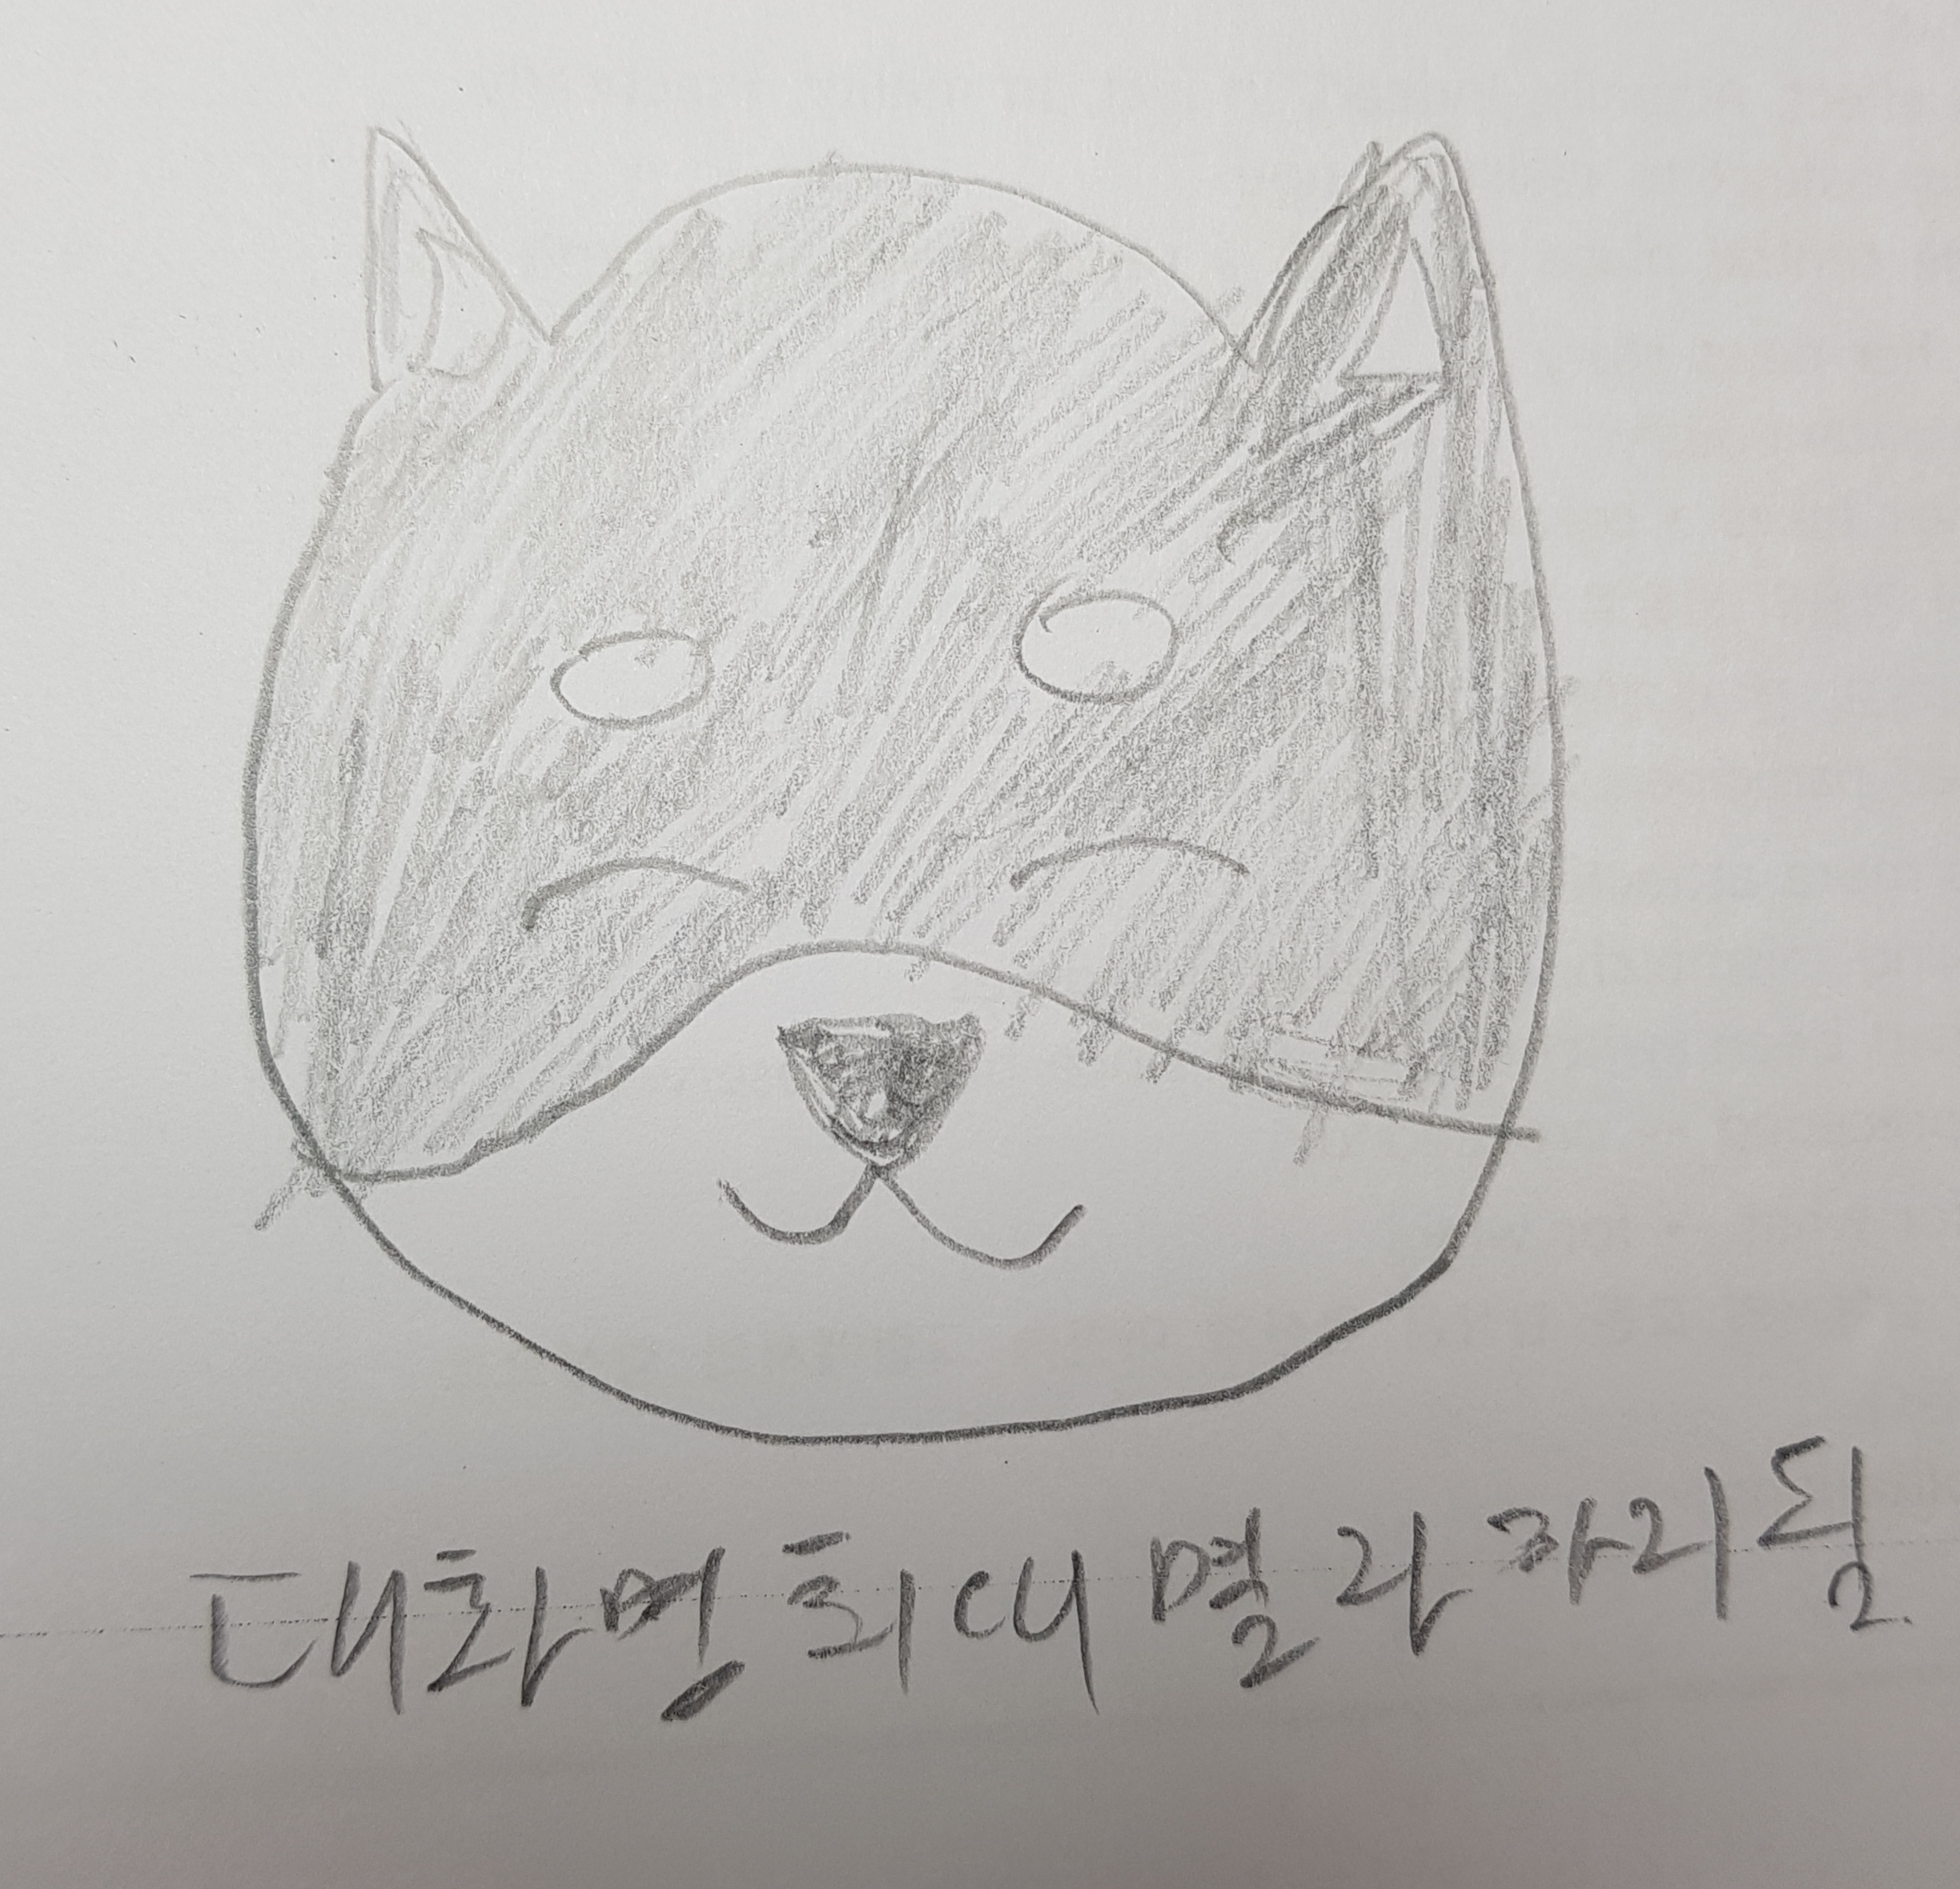 대화명희대멸라자리될